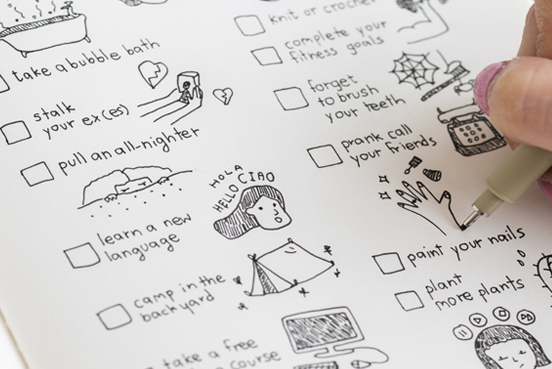 take a bubble bath
stalk
your ex(es)
pull an all-nighter
HOLA
HELLO CIAO
learn a new
language
camp in the
backyard
take a free
course
knit or crochet
complete your
fitness goals
forget
to brush
your teeth
prank call
your friends
paint your nails
plant
more plants